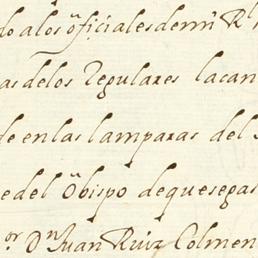 do a los oficiales de mi R
as de los Regulares la can
de en las lamparas del
e del Obispo de que se gas
or. Dn Juan Ruiz Colmen